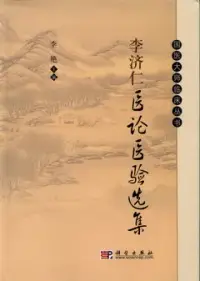 国医大师临床丛书
李艳 主编
李济仁医论医验选集
科学出版社